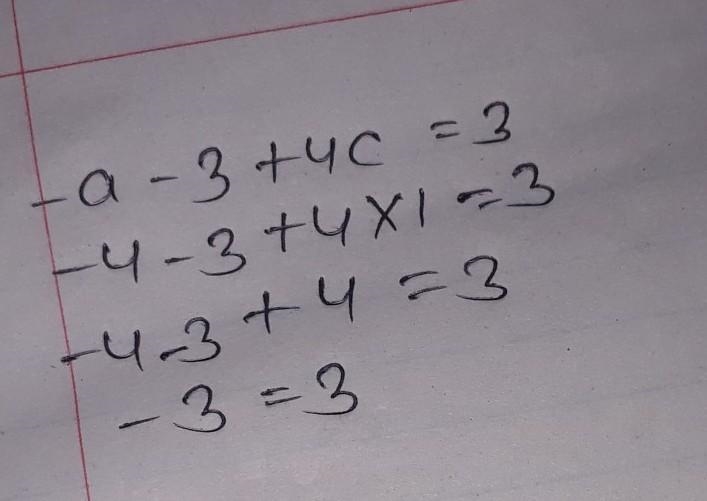 -a-3+4c=3
-4-3+4×1=3
-4-3+4=3
-3=3